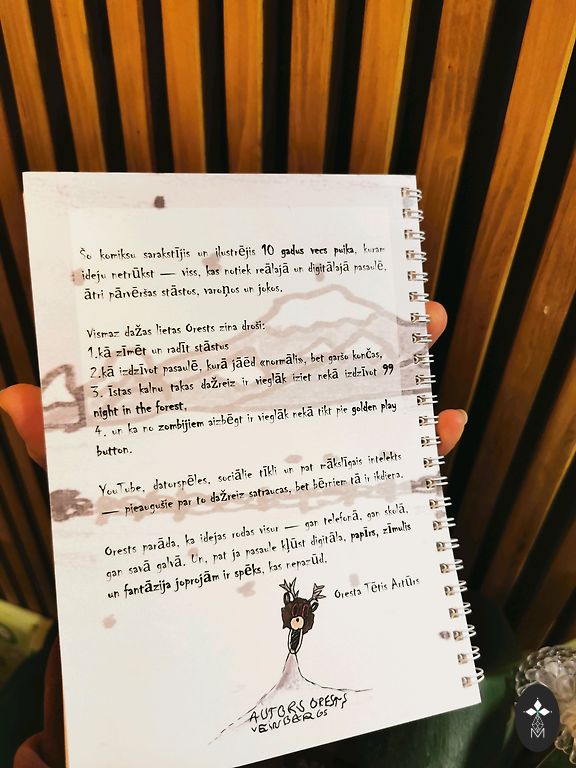 Šo komiksu sarakstījis un ilustrējis 10 gadus vecs puika, kuram
ideju netrūkst — viss, kas notiek reālajā un digitālajā pasaulē,
ātri pārvēršas stāstos, varoņos un jokos.
Vismaz dažas lietas Orests zina droši:
1.kā zīmēt un radīt stāstus
2.kā izdzīvot pasaulē, kurā jāēd «normāli», bet garšo končas,
3. Īstas kalnu takas dažreiz ir vieglāk iziet nekā izdzīvot 99
night in the forest,
4. un ka no zombijiem aizbēgt ir vieglāk nekā tikt pie golden play
button.
YouTube, datorspēles, sociālie tīkli un pat mākslīgais intelekts
— pieaugušie par to dažreiz satraucas, bet bērniem tā ir ikdiena.
Orests parāda, ka idejas rodas visur — gan telefonā, gan skolā,
gan savā galvā. Un, pat ja pasaule kļūst digitāla, papīrs, zīmulis
un fantāzija joprojām ir spēks, kas nepazūd.
Oresta Tētis Artūrs
AUTORS ORESTS
VEINBERGS